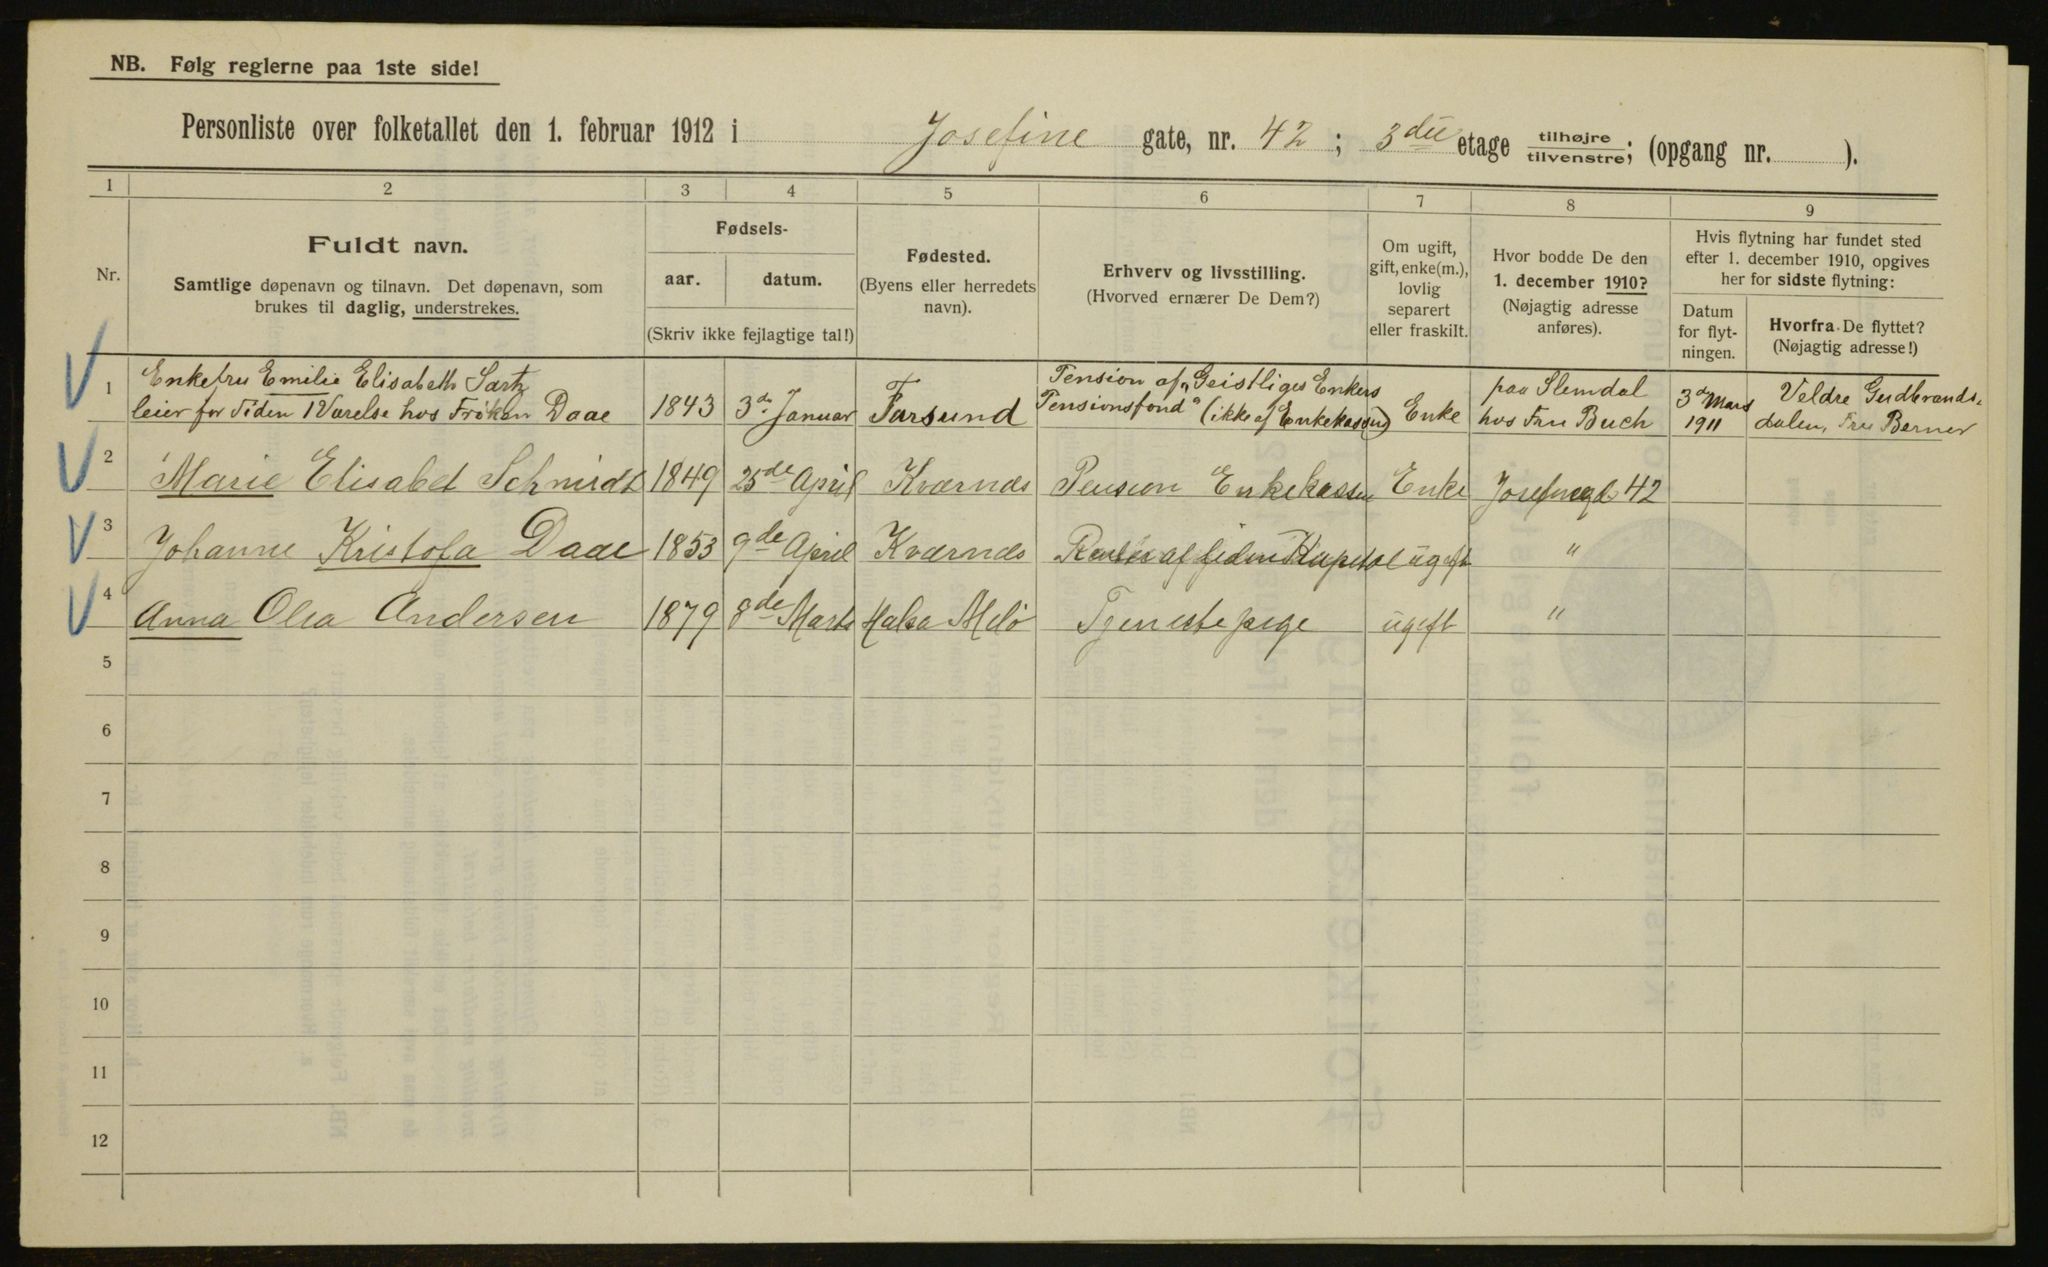 NB. Følg reglerne paa 1ste side!
Personliste over folketallet den 1. februar 1912 i Josefine gate, nr. 42 ; 3die etage tilhøjre/tilvenstre; (opgang nr. ).
1 2 3 4 5 6 7 8 9
Nr.
Fuldt navn.
Samtlige døpenavn og tilnavn. Det døpenavn, som
brukes til daglig, understrekes.
Fødsels-
aar. datum.
(Skriv ikke fejlagtige tal!)
Fødested.
(Byens eller herredets
navn).
Erhverv og livsstilling.
(Hvorved ernærer De Dem?)
Om ugift,
gift, enke(m.),
lovlig
separert
eller fraskilt.
Hvor bodde De den
1. december 1910?
(Nøjagtig adresse
anføres).
Hvis flytning har fundet sted
efter 1. december 1910, opgives
her for sidste flytning:
Datum
for flyt-
ningen.
Hvorfra De flyttet?
(Nøjagtig adresse!)
1 Enkefru Emilie Elisabeth Sartz Pension af „Geistliges Enkers paa Slemdal 3de Mars Veldre Gudbrands-
leier for Tiden 1 Værelse hos Frøken Daae 1843 3de Januar Farsund Pensionsfond" (ikke af Enkekassen) Enke hos Fru Buch 1911 dalen, Fru Berner
2 Marie Elisabet Schmidt 1849 25de April Kværnes Pension Enkekassen Enke Josefinegd 42
3 Johanne Kristofa Daae 1853 9de April Kværnes Renter af Kapital ugift "
4 Anna Olea Andersen 1879 8de Marts Halsa Melø Tjenestepige ugift "
5
6
7
8
9
10
11
12